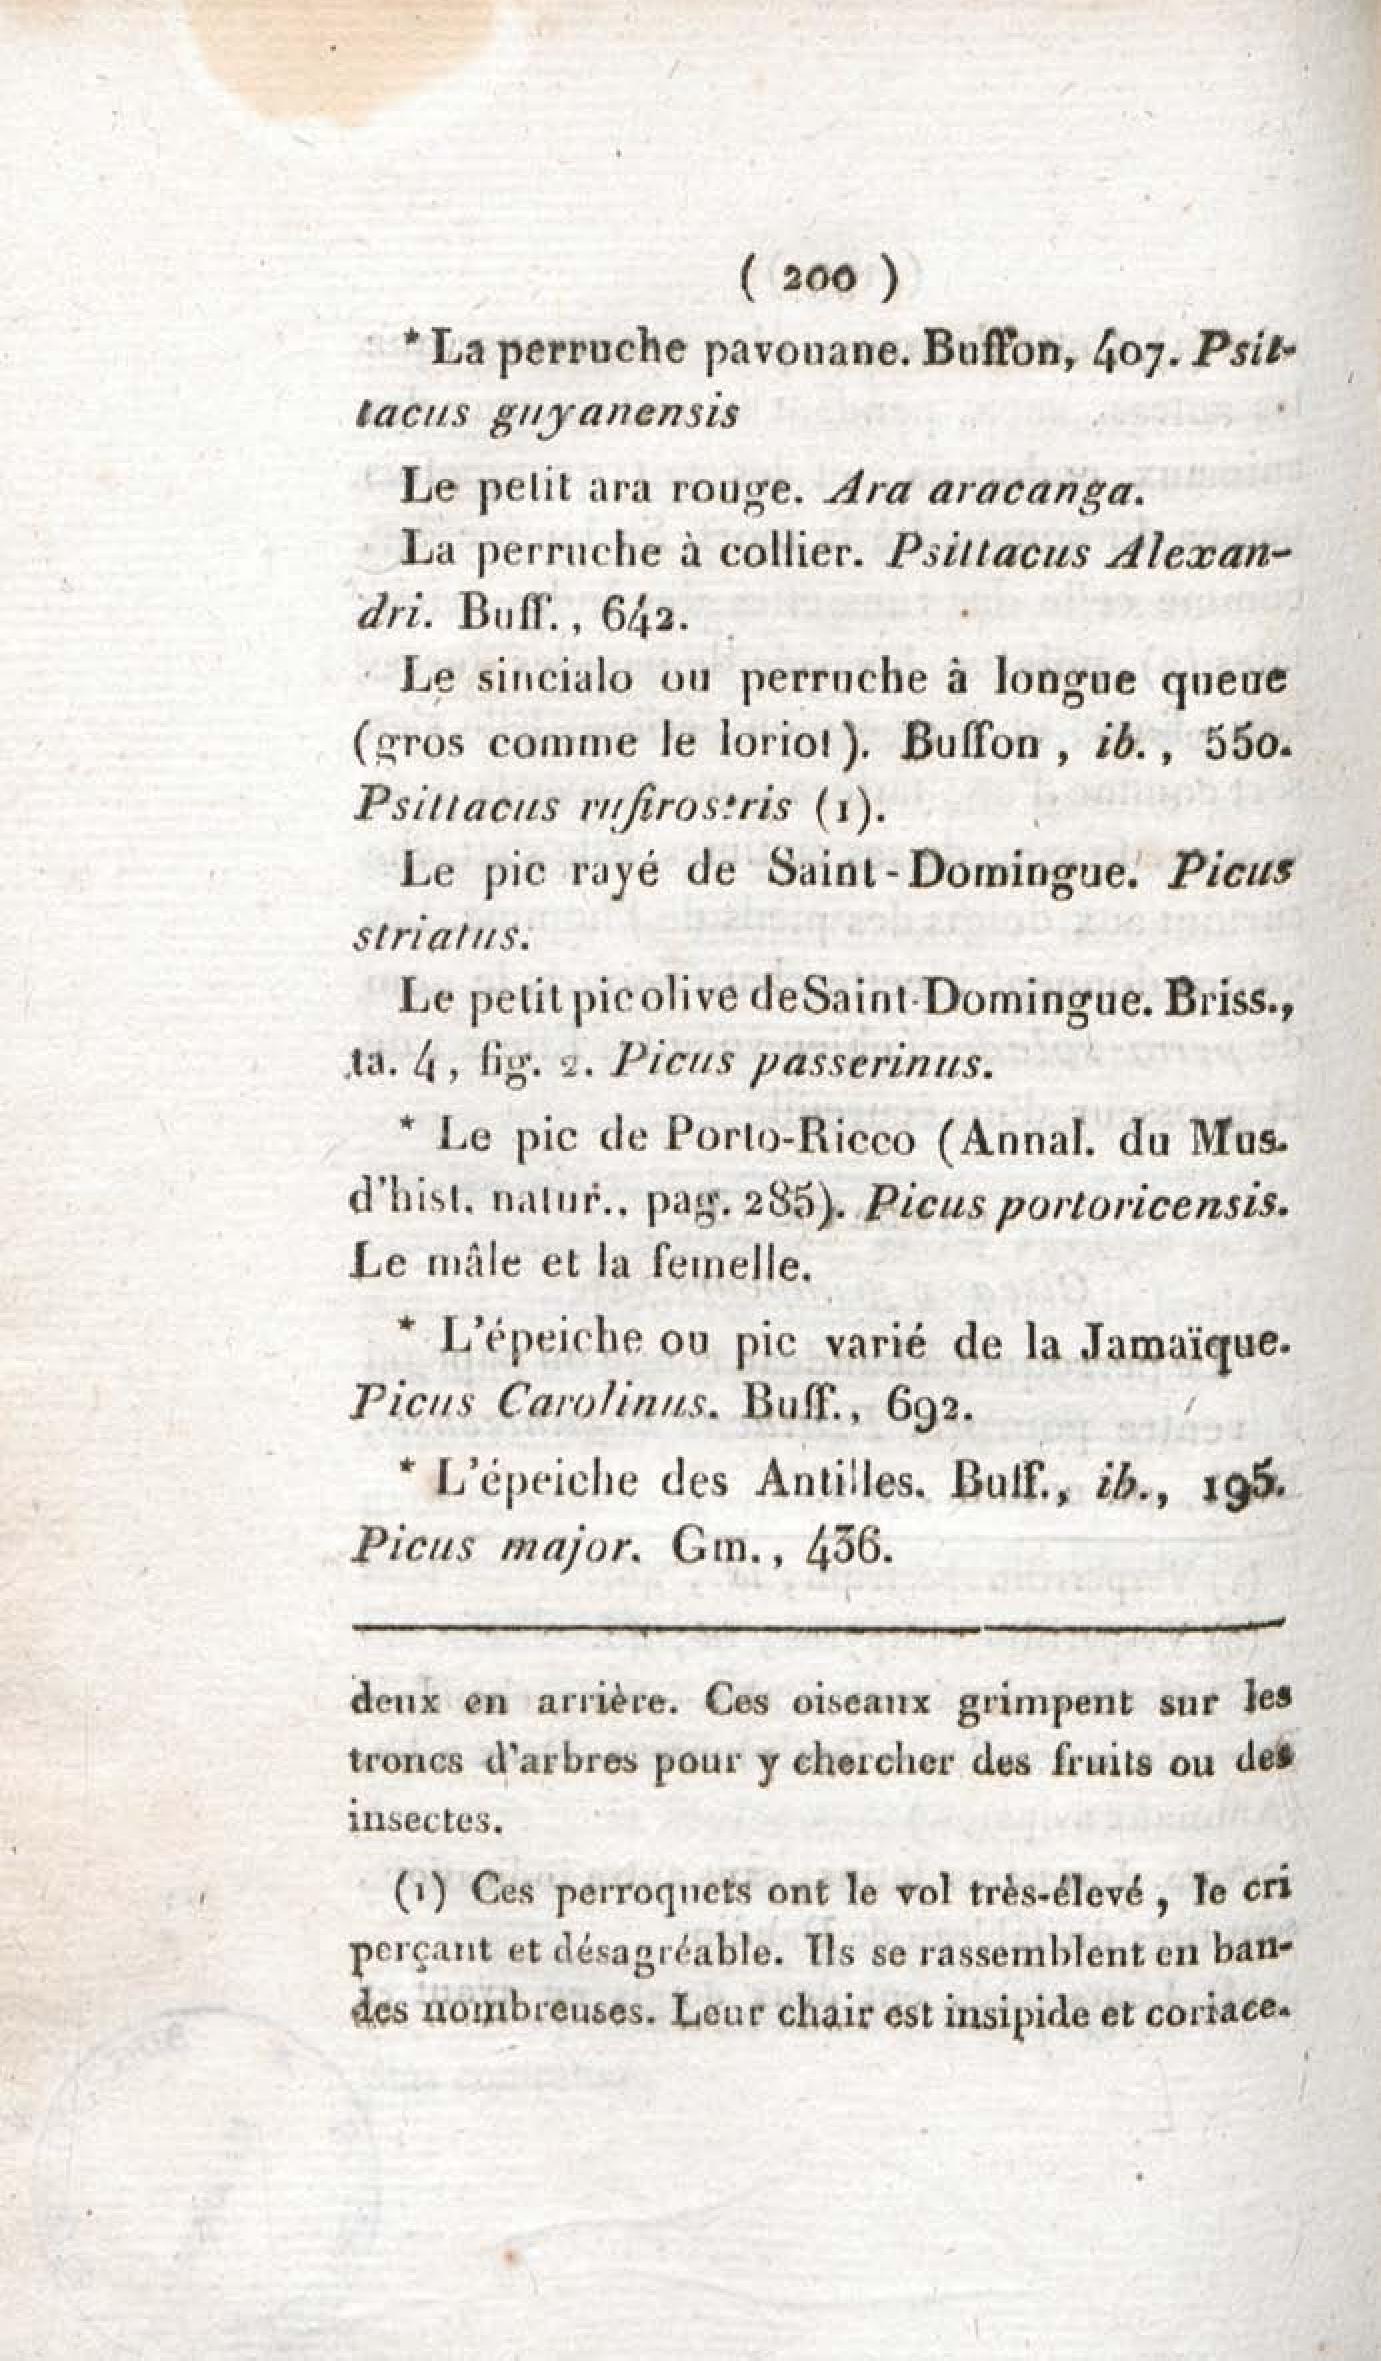 ( 200 )
* La perruche pavouane. Buffon, 407. Psit-
tacus guyanensis
Le petit ara rouge. Ara aracanga.
La perruche à collier. Psittacus Alexan-
dri. Buff., 642.
Le sincialo ou perruche à longue queue
(gros comme le loriot). Buffon, ib., 550.
Psittacus rufirostris (1).
Le pic rayé de Saint-Domingue. Picus
striatus.
Le petit pic olive de Saint-Domingue. Briss.,
ta. 4, fig. 2. Picus passerinus.
* Le pic de Porto-Ricco (Annal. du Mus.
d'hist. natur., pag. 285). Picus portoricensis.
Le mâle et la femelle.
* L'épeiche ou pic varié de la Jamaïque.
Picus Carolinus. Buff., 692.
* L'épeiche des Antilles. Buff., ib., 195.
Picus major. Gm., 436.
deux en arrière. Ces oiseaux grimpent sur les
troncs d'arbres pour y chercher des fruits ou des
insectes.
(1) Ces perroquets ont le vol très-élevé, le cri
perçant et désagréable. Ils se rassemblent en ban-
des nombreuses. Leur chair est insipide et coriace.